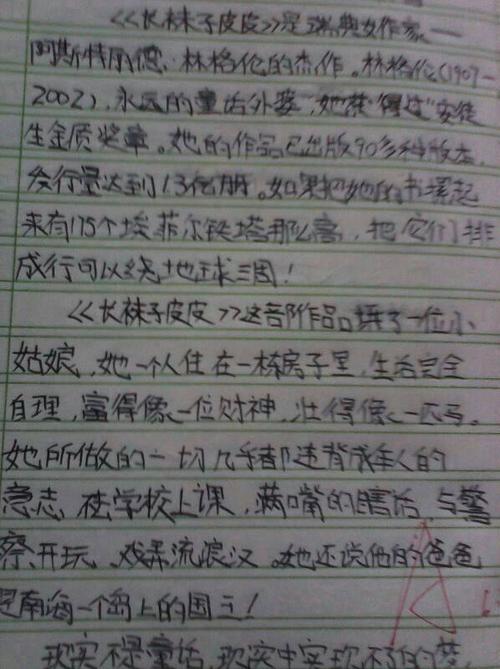 《长袜子皮皮》是瑞典女作家——
阿斯特丽德·林格伦的杰作。林格伦(1907-
2002),永远的童话外婆,她获得过安徒
生金质奖章。她的作品已出版90多种版本,
发行量达到1.3亿册。如果把她的书摞起
来有175个埃菲尔铁塔那么高,把它们排
成行可以绕地球三周!
《长袜子皮皮》这部作品描了一位小
姑娘,她一个人住在一栋房子里,生活完全
自理,富得像一位财神,壮得像一匹马。
她所做的一切几乎都违背成年人的
意志,在学校上课,满嘴的瞎话,与警
察开玩、戏弄流浪汉。她还说他的爸爸
是南海一个岛上的国王!
现实不是童话,现实中实现不了的梦,